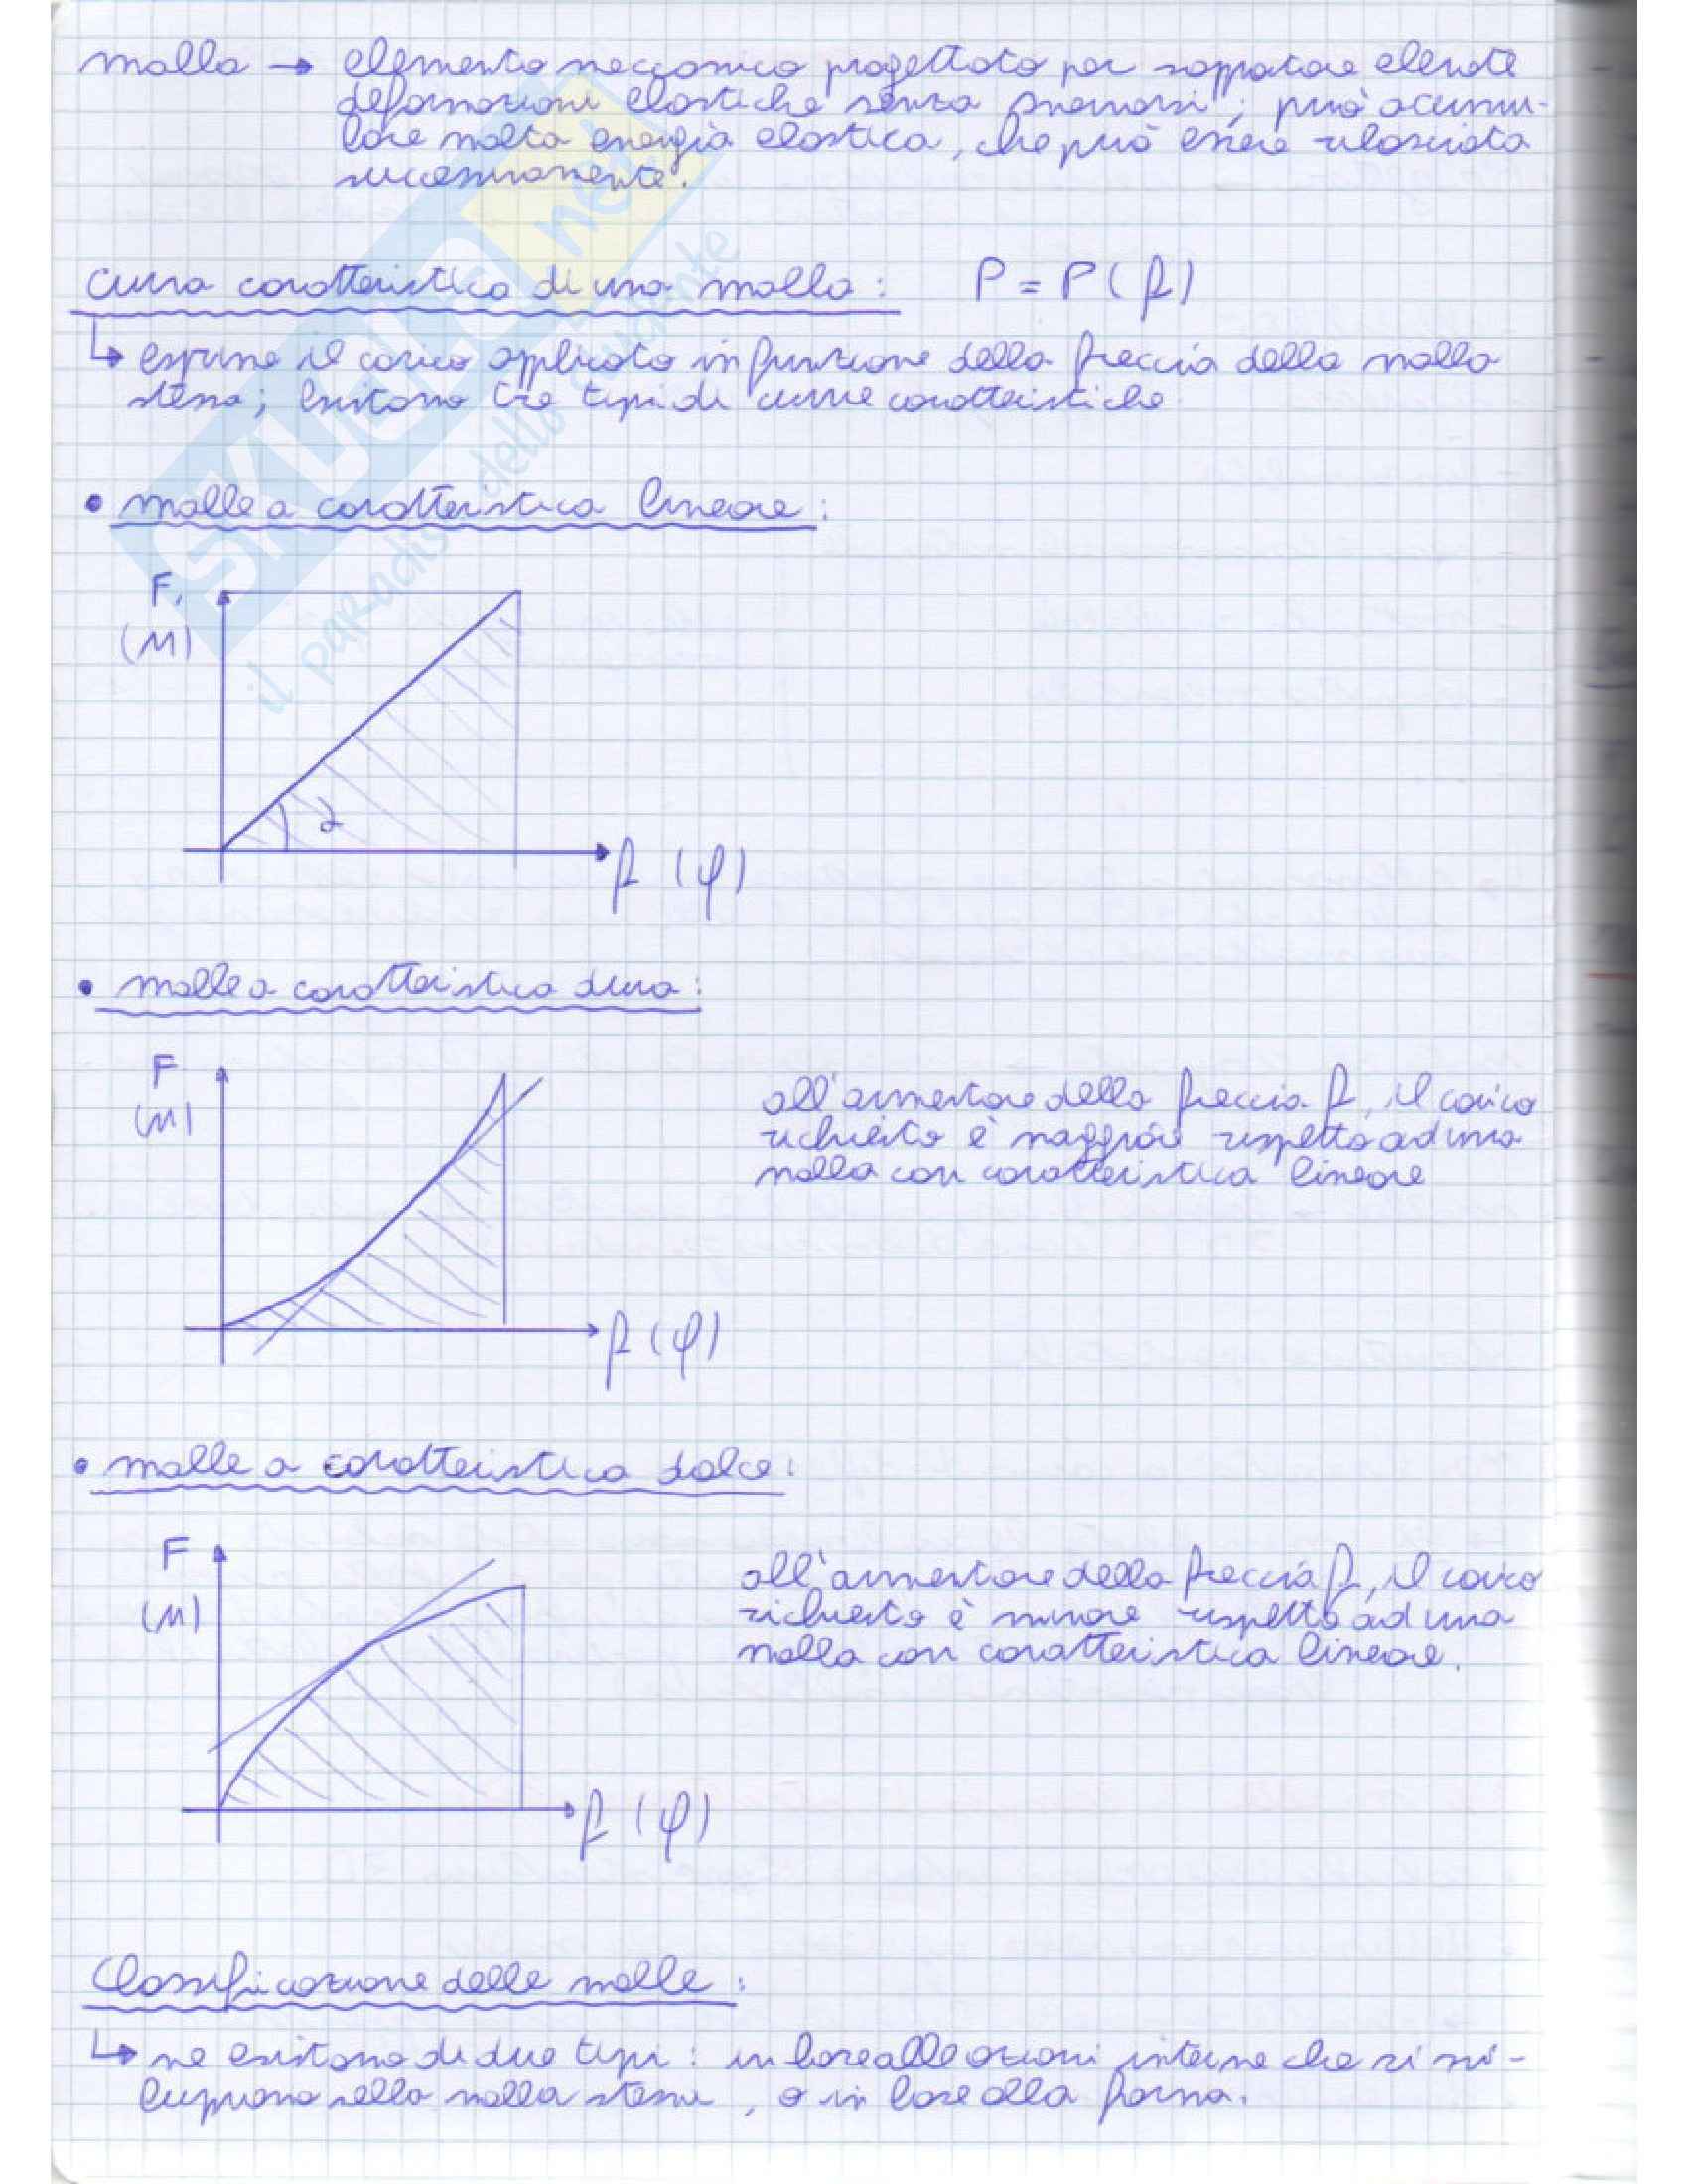 molla → elemento meccanico progettato per sopportare elevate
deformazioni elastiche senza snervarsi; può accumu-
lare molta energia elastica, che può essere rilasciata
successivamente.
curva caratteristica di una molla: P = P(f)
↳ esprime il carico applicato in funzione della freccia della molla
stessa; esistono tre tipi di curve caratteristiche
• molle a caratteristica lineare:
F,
(M)
α
f (φ)
• molle a caratteristica dura:
F
(M)
all'aumentare della freccia f, il carico
richiesto è maggiore rispetto ad una
molla con caratteristica lineare
f (φ)
• molle a caratteristica dolce:
F
(M)
all'aumentare della freccia f, il carico
richiesto è minore rispetto ad una
molla con caratteristica lineare.
f (φ)
Classificazione delle molle:
↳ ne esistono di due tipi: in base alle azioni interne che si svi-
luppano nella molla stessa, o in base alla forma.
SKUOLA.net
il paradiso dello studente